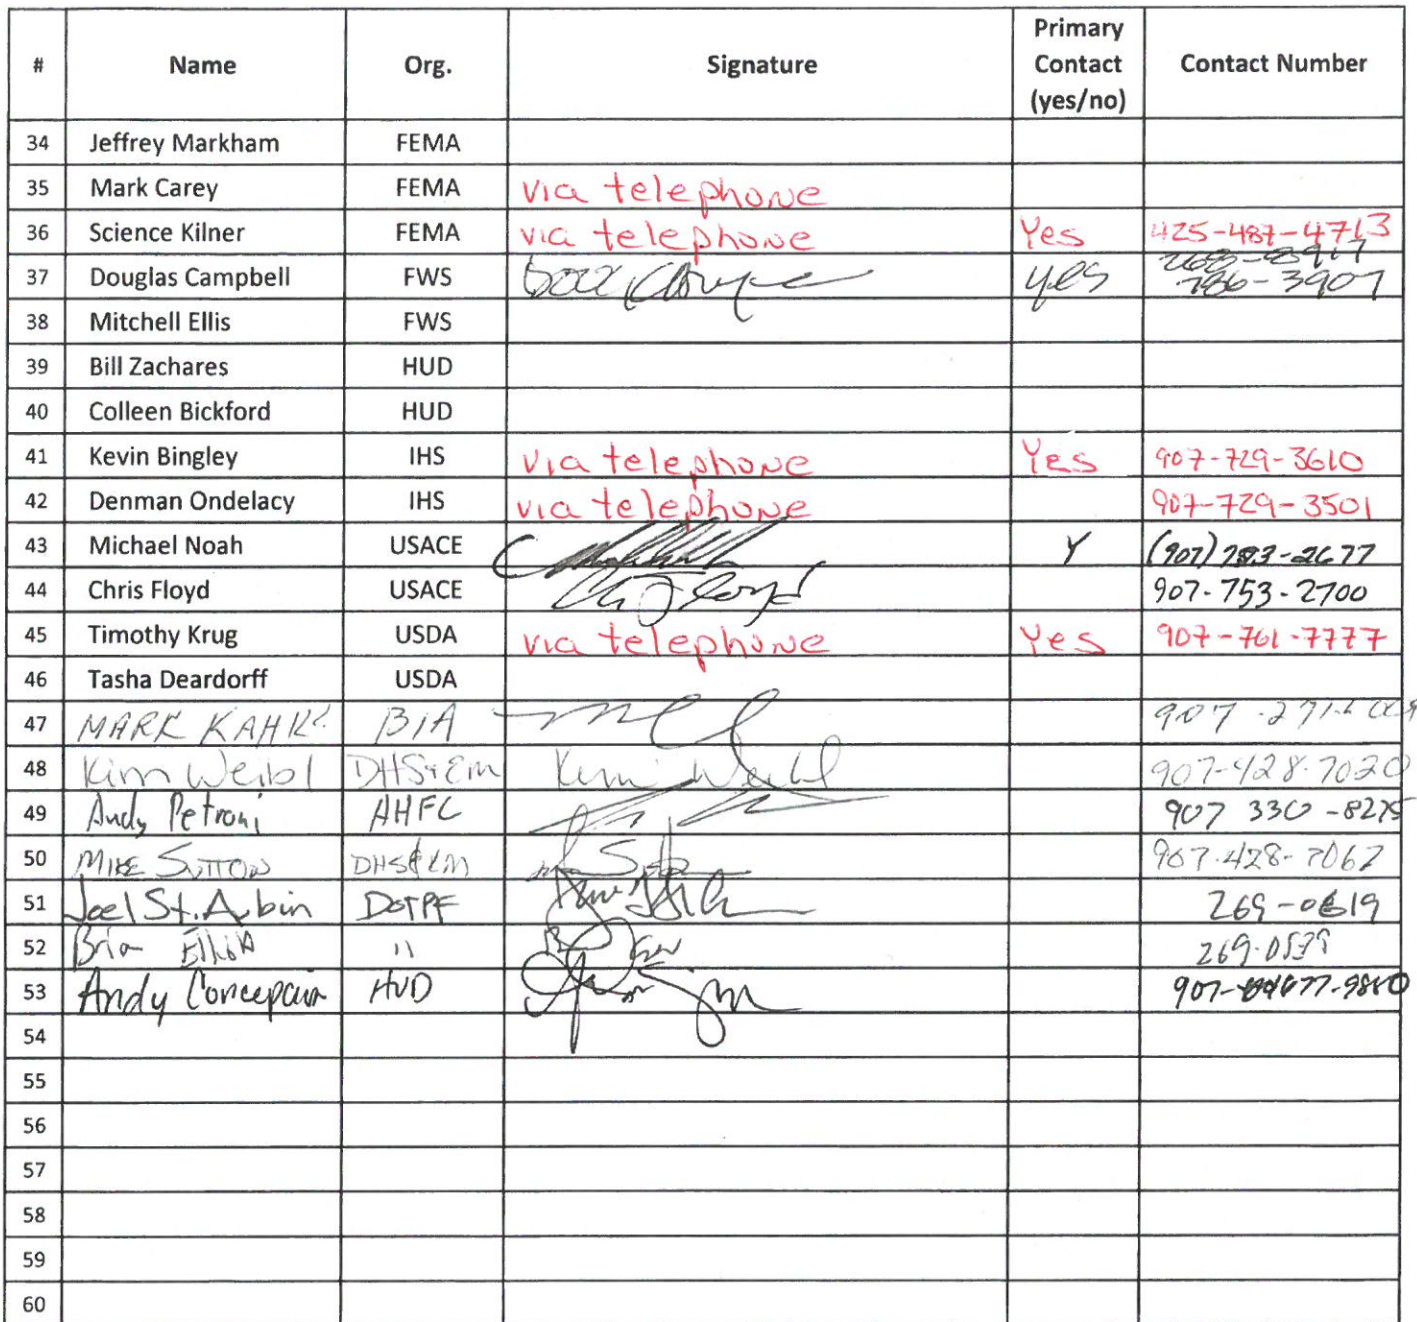 # Name Org. Signature Primary Contact (yes/no) Contact Number
34 Jeffrey Markham FEMA
35 Mark Carey FEMA via telephone
36 Science Kilner FEMA via telephone Yes 425-487-4713
37 Douglas Campbell FWS yes 786-3907
38 Mitchell Ellis FWS
39 Bill Zachares HUD
40 Colleen Bickford HUD
41 Kevin Bingley IHS via telephone Yes 907-729-3610
42 Denman Ondelacy IHS via telephone 907-729-3501
43 Michael Noah USACE Y (907)
44 Chris Floyd USACE 907-753-2700
45 Timothy Krug USDA via telephone Yes 907-761-7777
46 Tasha Deardorff USDA
47 MARK BIA 907
48 Kim Weibl DHS&EM Kim Weibl 907-428-7020
49 Andy Petroni AHFC 907 330-8275
50 MIKE SUTTON DHS&EM 907-428-7062
51 Joel St. Aubin DOTPF
52 Brian Elliott "
53 Andy HUD
54
55
56
57
58
59
60